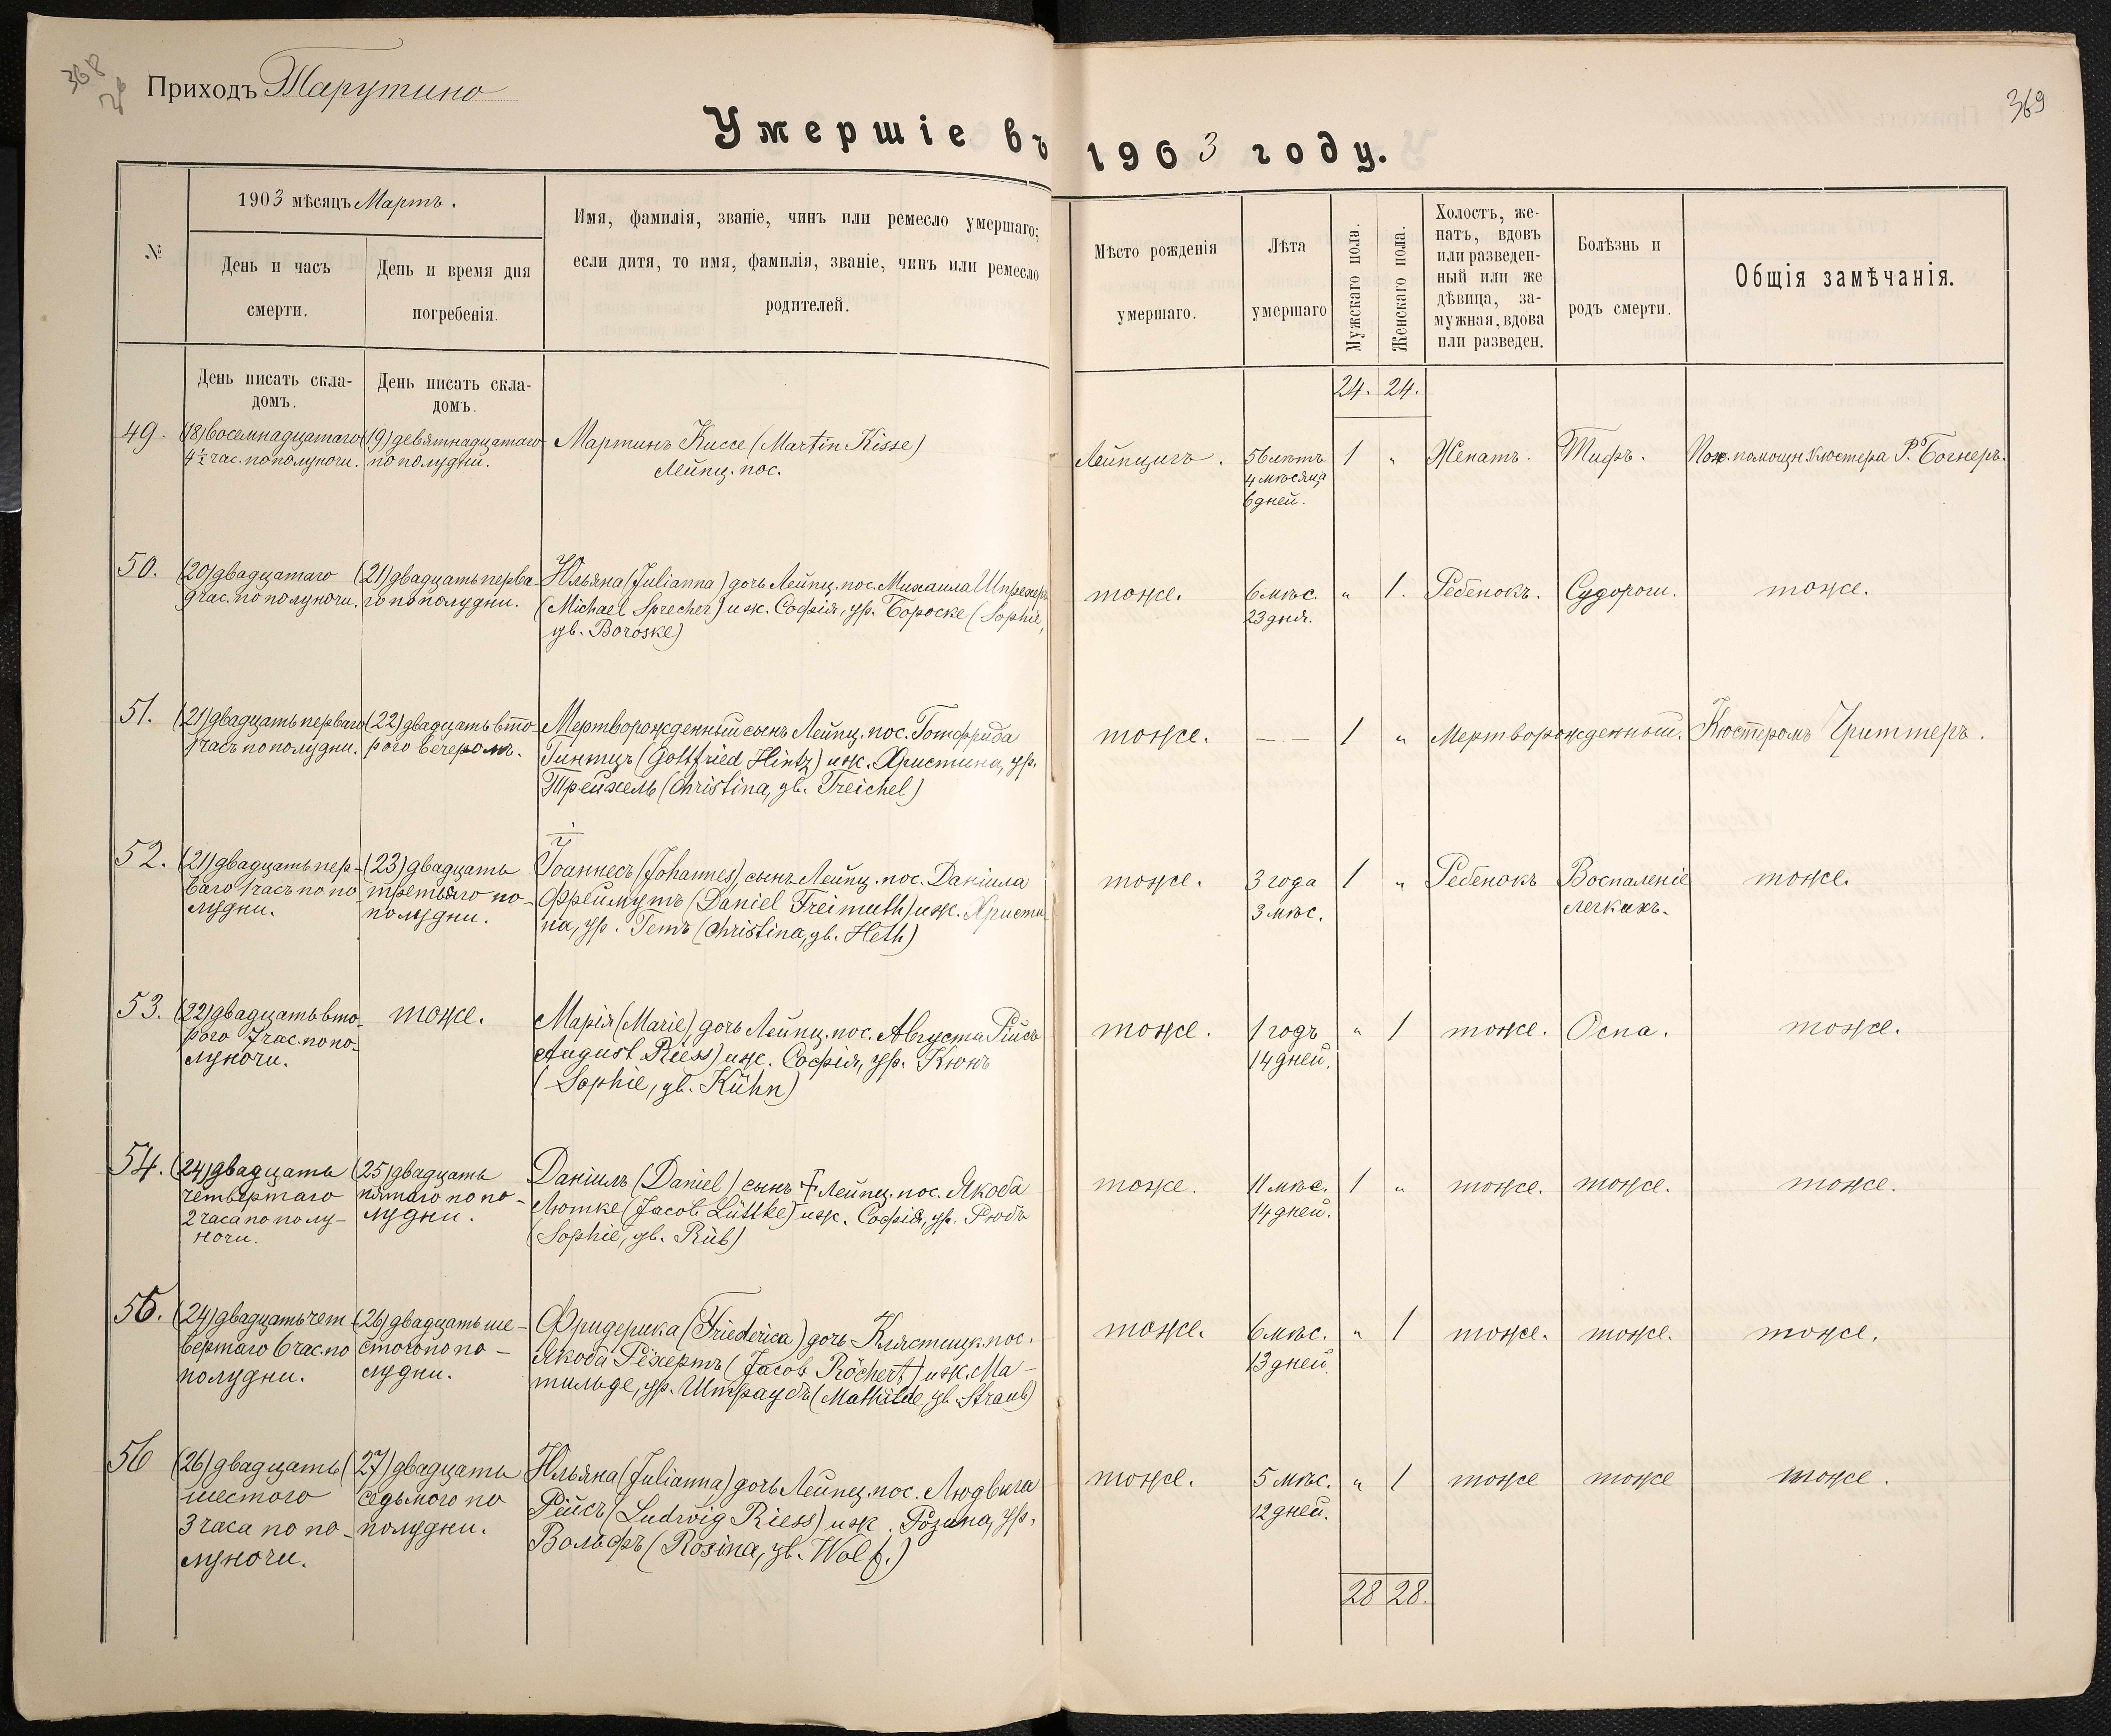 368
369
Приходъ Тарутино
Умершіе въ 1903 году.
№
1903 мѣсяцъ Мартъ.
День и часъ
смерти.
День и время дня
погребенія.
Имя, фамилія, званіе, чинъ или ремесло умершаго;
если дитя, то имя, фамилія, званіе, чинъ или ремесло
родителей.
Мѣсто рожденія
умершаго.
Лѣта
умершаго
Мужскаго пола.
Женскаго пола.
Холостъ, же-
натъ, вдовъ
или разведен-
ный или же
дѣвица, за-
мужная, вдова
или разведен.
Болѣзнь и
родъ смерти.
Общія замѣчанія.
День писать скла-
домъ.
День писать скла-
домъ.
24. 24.
49.
(18) восемнадцатаго
4½ час. пополуночи.
(19) девятнадцатаго
пополудни.
Мартинъ Киссе (Martin Kisse)
Лейпц. пос.
Лейпцигъ.
56 лѣтъ
4 мѣсяца
6 дней.
1 "
Женатъ.
Тифъ.
Пох. помощн. Кюстера Р. Богнеръ.
50.
(20) двадцатаго
9 час. пополуночи.
(21) двадцать перва-
го пополудни.
Юльяна (Julianna) дочь Лейпц. пос. Михаила Шпрехеръ
(Michael Sprecher) и ж. Софія, ур. Бороске (Sophie,
gb. Boroske)
тоже.
6 мѣс.
23 дня.
" 1.
Ребенокъ.
Судороги.
тоже.
51.
(21) двадцать перваго
1 часъ пополудни.
(22) двадцать вто-
рого вечеромъ.
Мертворожденный сынъ Лейпц. пос. Готфрида
Гинтцъ (Gottfried Hintz) и ж. Христина, ур.
Трейхель (Christina, gb. Treichel)
тоже.
— —
1 "
Мертворожденный.
Кюстеромъ Гриттеръ.
52.
(21) двадцать пер-
ваго 1 часъ по по
лудни.
(23) двадцать
третьяго по-
полудни.
Іоаннесъ (Johannes), сынъ Лейпц. пос. Даніила
Фреймутъ (Daniel Freimuth) и ж. Христи
на, ур. Гетъ (Christina, gb. Heth)
тоже.
3 года
3 мѣс.
1 "
Ребенокъ
Воспаленіе
легкихъ.
тоже.
53.
(22) двадцать вто-
рого 7 час. по по-
луночи.
тоже.
Марія (Marie) дочь Лейпц. пос. Августа Рійсъ
August Riess) и ж. Софія, ур. Кюнъ
(Sophie, gb. Kühn)
тоже.
1 годъ
14 дней.
" 1
тоже.
Оспа.
тоже.
54.
(24) двадцать
четвертаго
2 часа по полу-
ночи.
(25) двадцать
пятаго по по-
лудни.
Даніилъ (Daniel) сынъ † Лейпц. пос. Якоба
Лютке (Jacob Lüttke) и ж. Софія, ур. Рюбъ
(Sophie, gb. Rüb)
тоже.
11 мѣс.
14 дней.
1 "
тоже.
тоже.
тоже.
55.
(24) двадцать чет-
вертаго 6 час. по
полудни.
(26) двадцать ше-
стого по по-
лудни.
Фридерика (Friederica) дочь Клястицк. пос.
Якоба Рёхертъ (Jacob Röchert) и ж. Ма-
тильде, ур. Штраубъ (Mathilde, gb. Straub)
тоже.
6 мѣс.
13 дней.
" 1
тоже.
тоже.
тоже.
56
(26) двадцать
шестого
3 часа по по-
луночи.
(27) двадцать
седьмого по
полудни.
Юльяна (Julianna) дочь Лейпц. пос. Людвига
Рійсъ (Ludwig Riess) и ж. Розина, ур.
Вольфъ (Rosina, gb. Wolf.)
тоже.
5 мѣс.
12 дней.
" 1
тоже
тоже
тоже.
28 28.